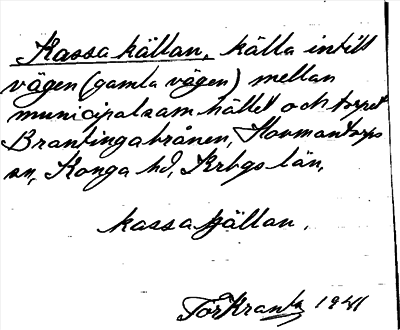 Kassa källan, källa intill
vägen (gamla vägen) mellan
municipalsamhället och torpet
Brantingabrånen, Hovmantorps
sn, Konga hd, Krbgs län,
kassa källan.
Tor Krantz 1941